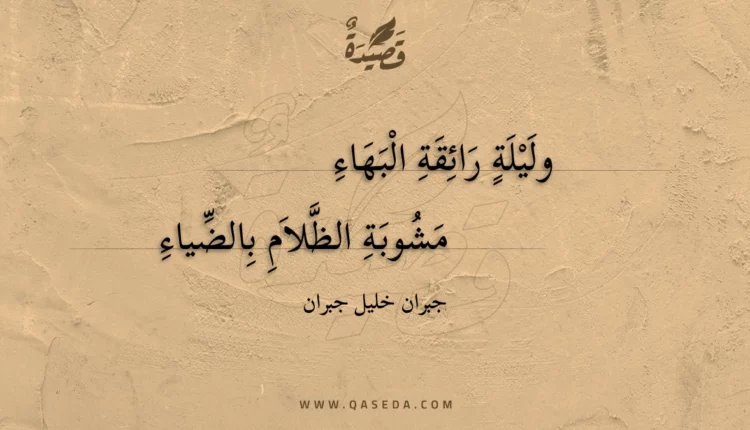 قَصِيدَةٌ
ولَيْلَةٍ رَائِقَةِ الْبَهَاءِ
مَشُوبَةِ الظَّلاَمِ بِالضِّياءِ
جبران خليل جبران
WWW.QASEDA.COM